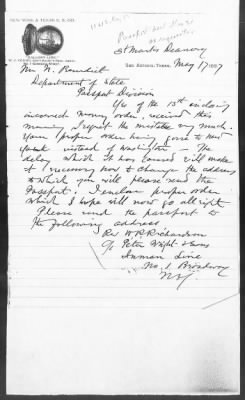 NEW YORK & TEXAS S. S. CO.
Passport sent
as requested
St Marks Deanery
San Antonio, Texas, May 17 1887
Mr. N. Benedict
Department of State
Passport Division
Yrs of the 13th enclosing
incorrect money order, received this
morning. I regret the mistake very much.
Your proper order having gone to New
York instead of Washington — The
delay which it has caused will make
it necessary now to change the address
to which you will please send the
Passport. I enclose proper order
which I hope will now go all right
Please send the passport to
the following address
Rev W R Richardson
c/o Peter Wright & Sons
Inman Line
No. 1. Broadway
N.Y.